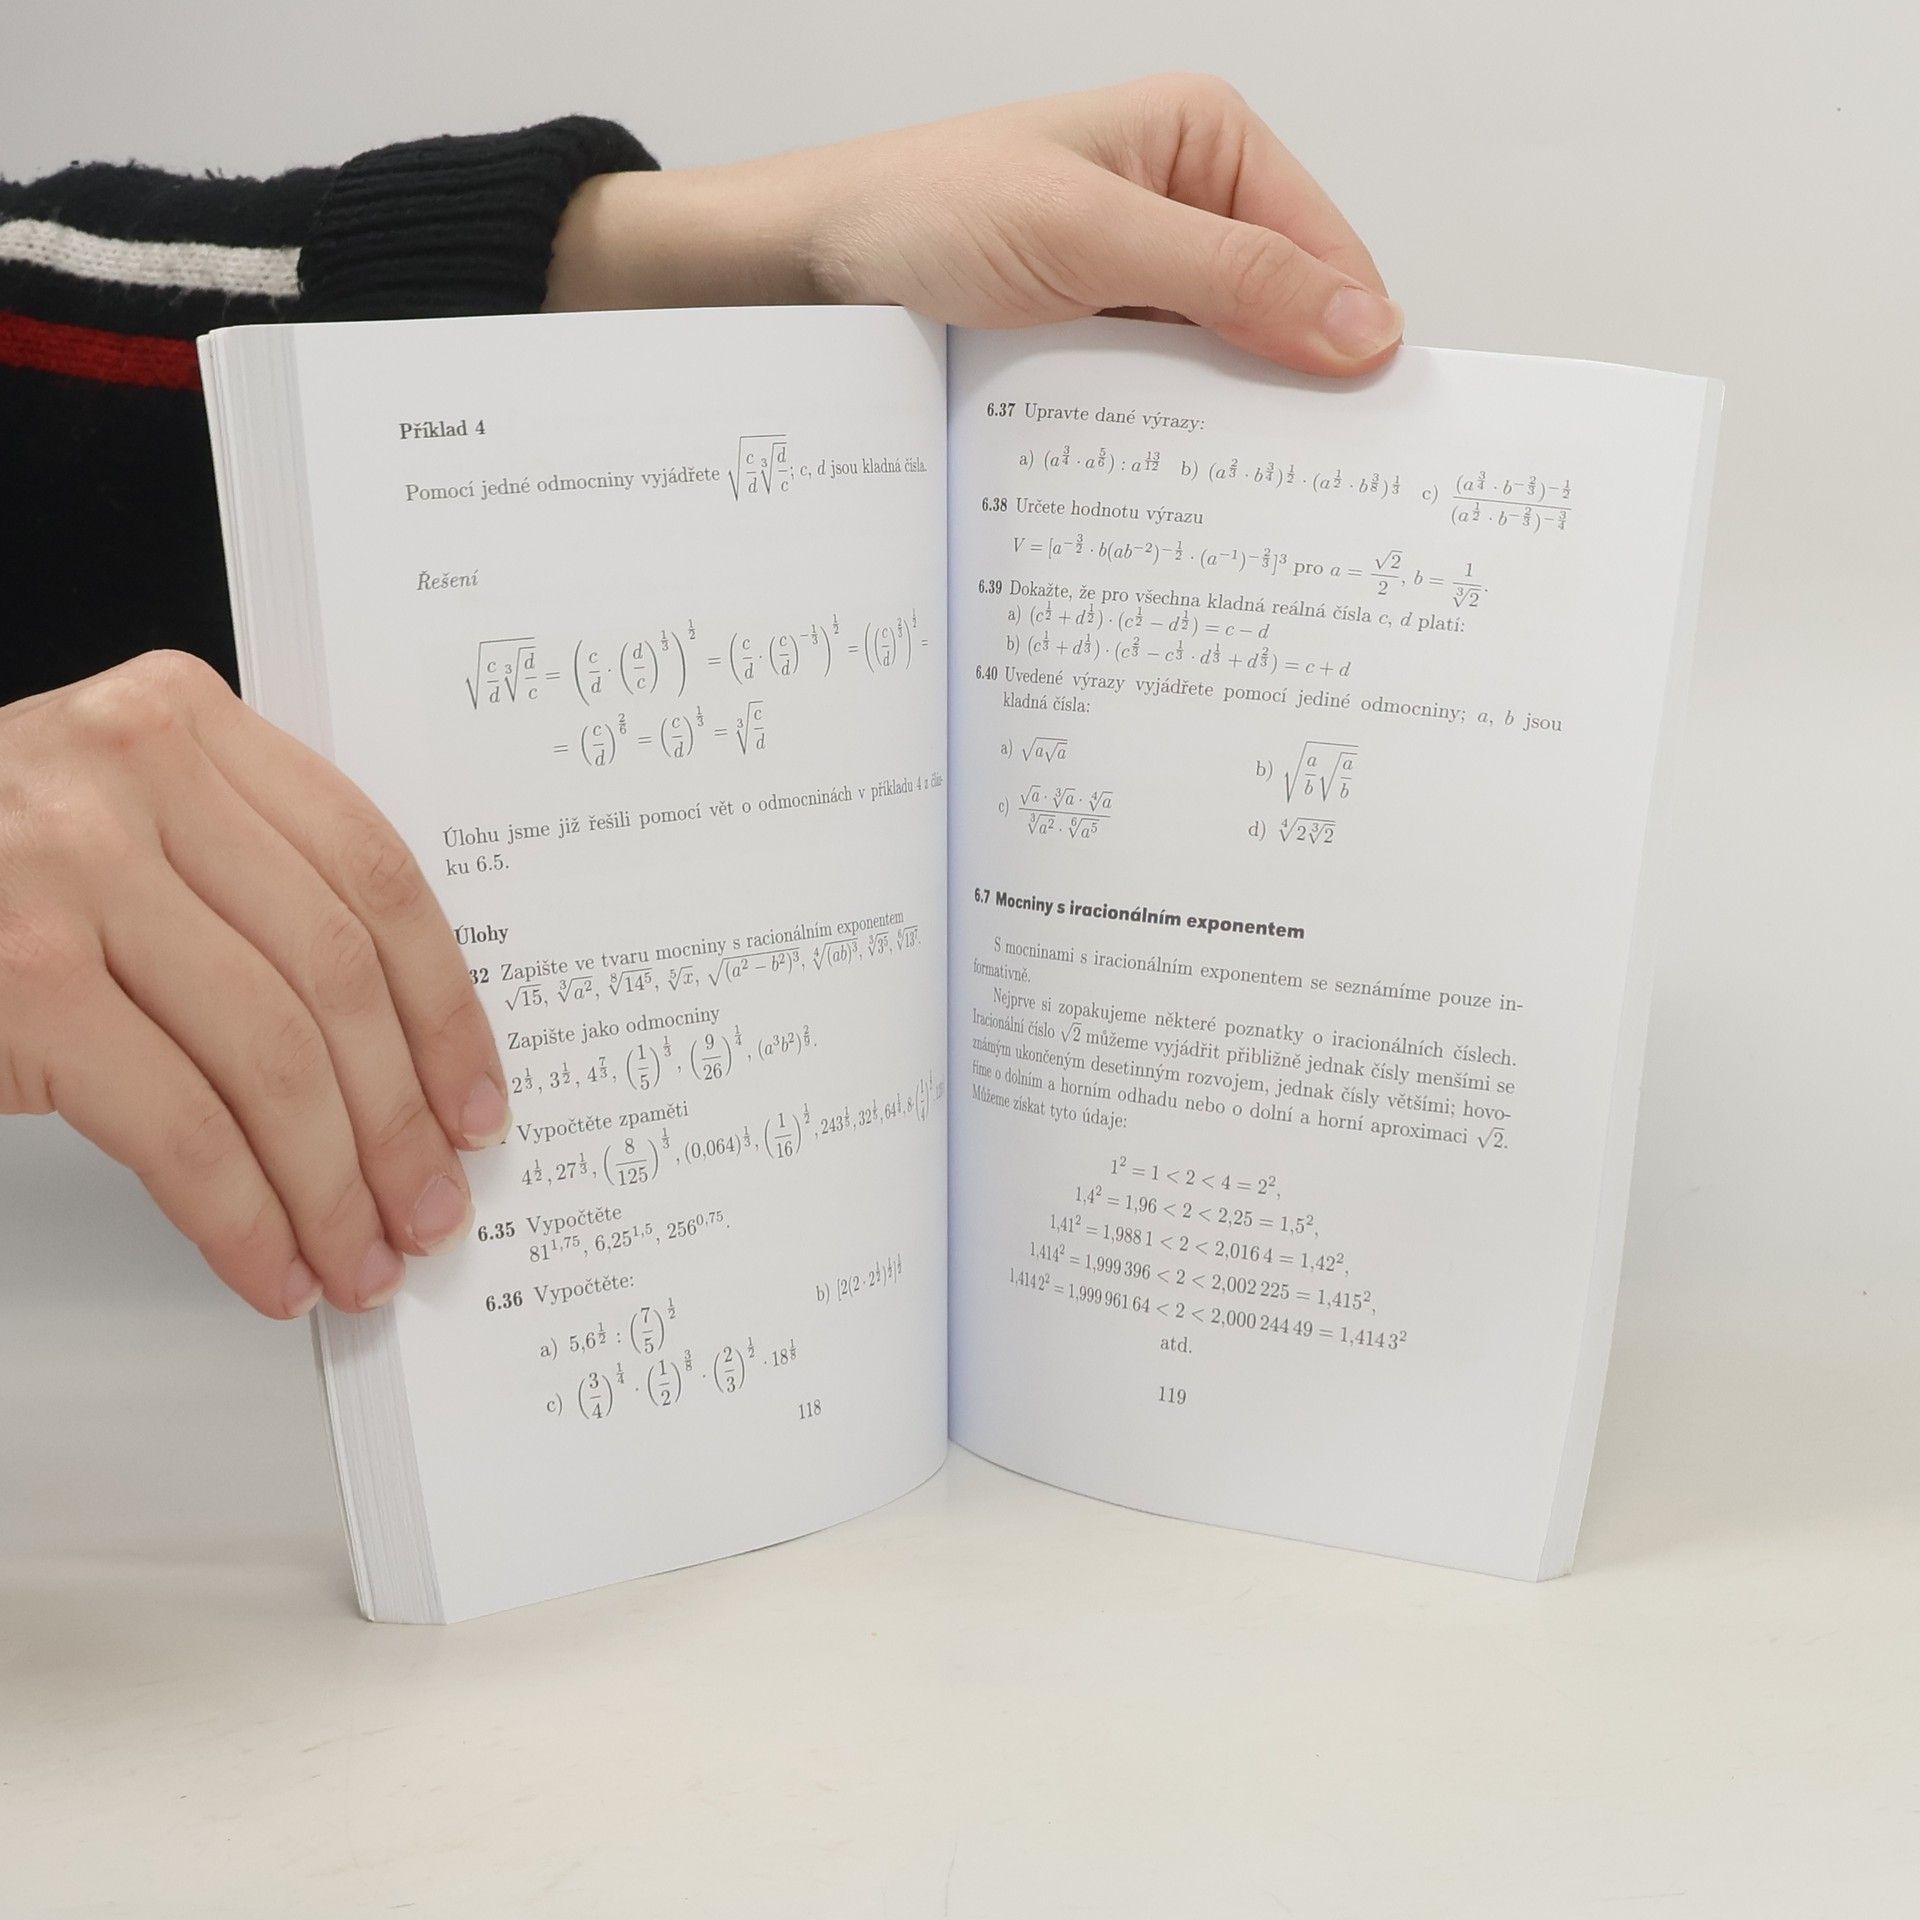 Příklad 4
Pomocí jedné odmocniny vyjádřete √(c/d ∛(d/c)); c, d jsou kladná čísla.
Řešení
√(c/d ∛(d/c)) = (c/d · (d/c)^(1/3))^(1/2) = (c/d · (c/d)^(−1/3))^(1/2) = ((c/d)^(2/3))^(1/2) =
= (c/d)^(2/6) = (c/d)^(1/3) = ∛(c/d)
Úlohu jsme již řešili pomocí vět o odmocninách v příkladu 4 z člán-
ku 6.5.
Úlohy
32 Zapište ve tvaru mocniny s racionálním exponentem
√15, ∛(a²), ⁸√(14⁵), ⁵√x, √((a² − b²)³), ⁴√((ab)³), ∛(3⁵), ⁶√(13⁷).
Zapište jako odmocniny
2^(1/3), 3^(1/2), 4^(7/3), (1/5)^(1/3), (9/26)^(1/4), (a³b²)^(2/9).
Vypočtěte zpaměti
4^(1/2), 27^(1/3), (8/125)^(1/3), (0,064)^(1/3), (1/16)^(1/2), 243^(1/5), 32^(1/5),
6.35 Vypočtěte
81^(1,75), 6,25^(1,5), 256^(0,75).
6.36 Vypočtěte:
a) 5,6^(1/2) : (7/5)^(1/2) b) [2(2 · 2^(1/2))^(1/2)]^(1/2)
c) (3/4)^(1/4) · (1/2)^(3/8) · (2/3)^(1/2) · 18^(1/8)
118
6.37 Upravte dané výrazy:
a) (a^(3/4) · a^(5/6)) : a^(13/12) b) (a^(2/3) · b^(3/4))^(1/2) · (a^(1/2) · b^(3/8))^(1/3) c) (a^(3/4) · b^(−2/3))^(−1/2) / (a^(1/2) · b^(−2/3))^(−3/4)
6.38 Určete hodnotu výrazu
V = [a^(−3/2) · b(ab^(−2))^(−1/2) · (a^(−1))^(−2/3)]³ pro a = √2/2, b = 1/∛2.
6.39 Dokažte, že pro všechna kladná reálná čísla c, d platí:
a) (c^(1/2) + d^(1/2)) · (c^(1/2) − d^(1/2)) = c − d
b) (c^(1/3) + d^(1/3)) · (c^(2/3) − c^(1/3) · d^(1/3) + d^(2/3)) = c + d
6.40 Uvedené výrazy vyjádřete pomocí jediné odmocniny; a, b jsou
kladná čísla:
a) √(a√a) b) √(a/b √(a/b))
c) (√a · ∛a · ⁴√a) / (∛(a²) · ⁶√(a⁵)) d) ⁴√(2∛2)
6.7 Mocniny s iracionálním exponentem
S mocninami s iracionálním exponentem se seznámíme pouze in-
formativně.
Nejprve si zopakujeme některé poznatky o iracionálních číslech.
Iracionální číslo √2 můžeme vyjádřit přibližně jednak čísly menšími se
známým ukončeným desetinným rozvojem, jednak čísly většími; hovo-
říme o dolním a horním odhadu nebo o dolní a horní aproximaci √2.
Můžeme získat tyto údaje:
1² = 1 < 2 < 4 = 2²,
1,4² = 1,96 < 2 < 2,25 = 1,5²,
1,41² = 1,988 1 < 2 < 2,016 4 = 1,42²,
1,414² = 1,999 396 < 2 < 2,002 225 = 1,415²,
1,414 2² = 1,999 961 64 < 2 < 2,000 244 49 = 1,414 3²
atd.
119